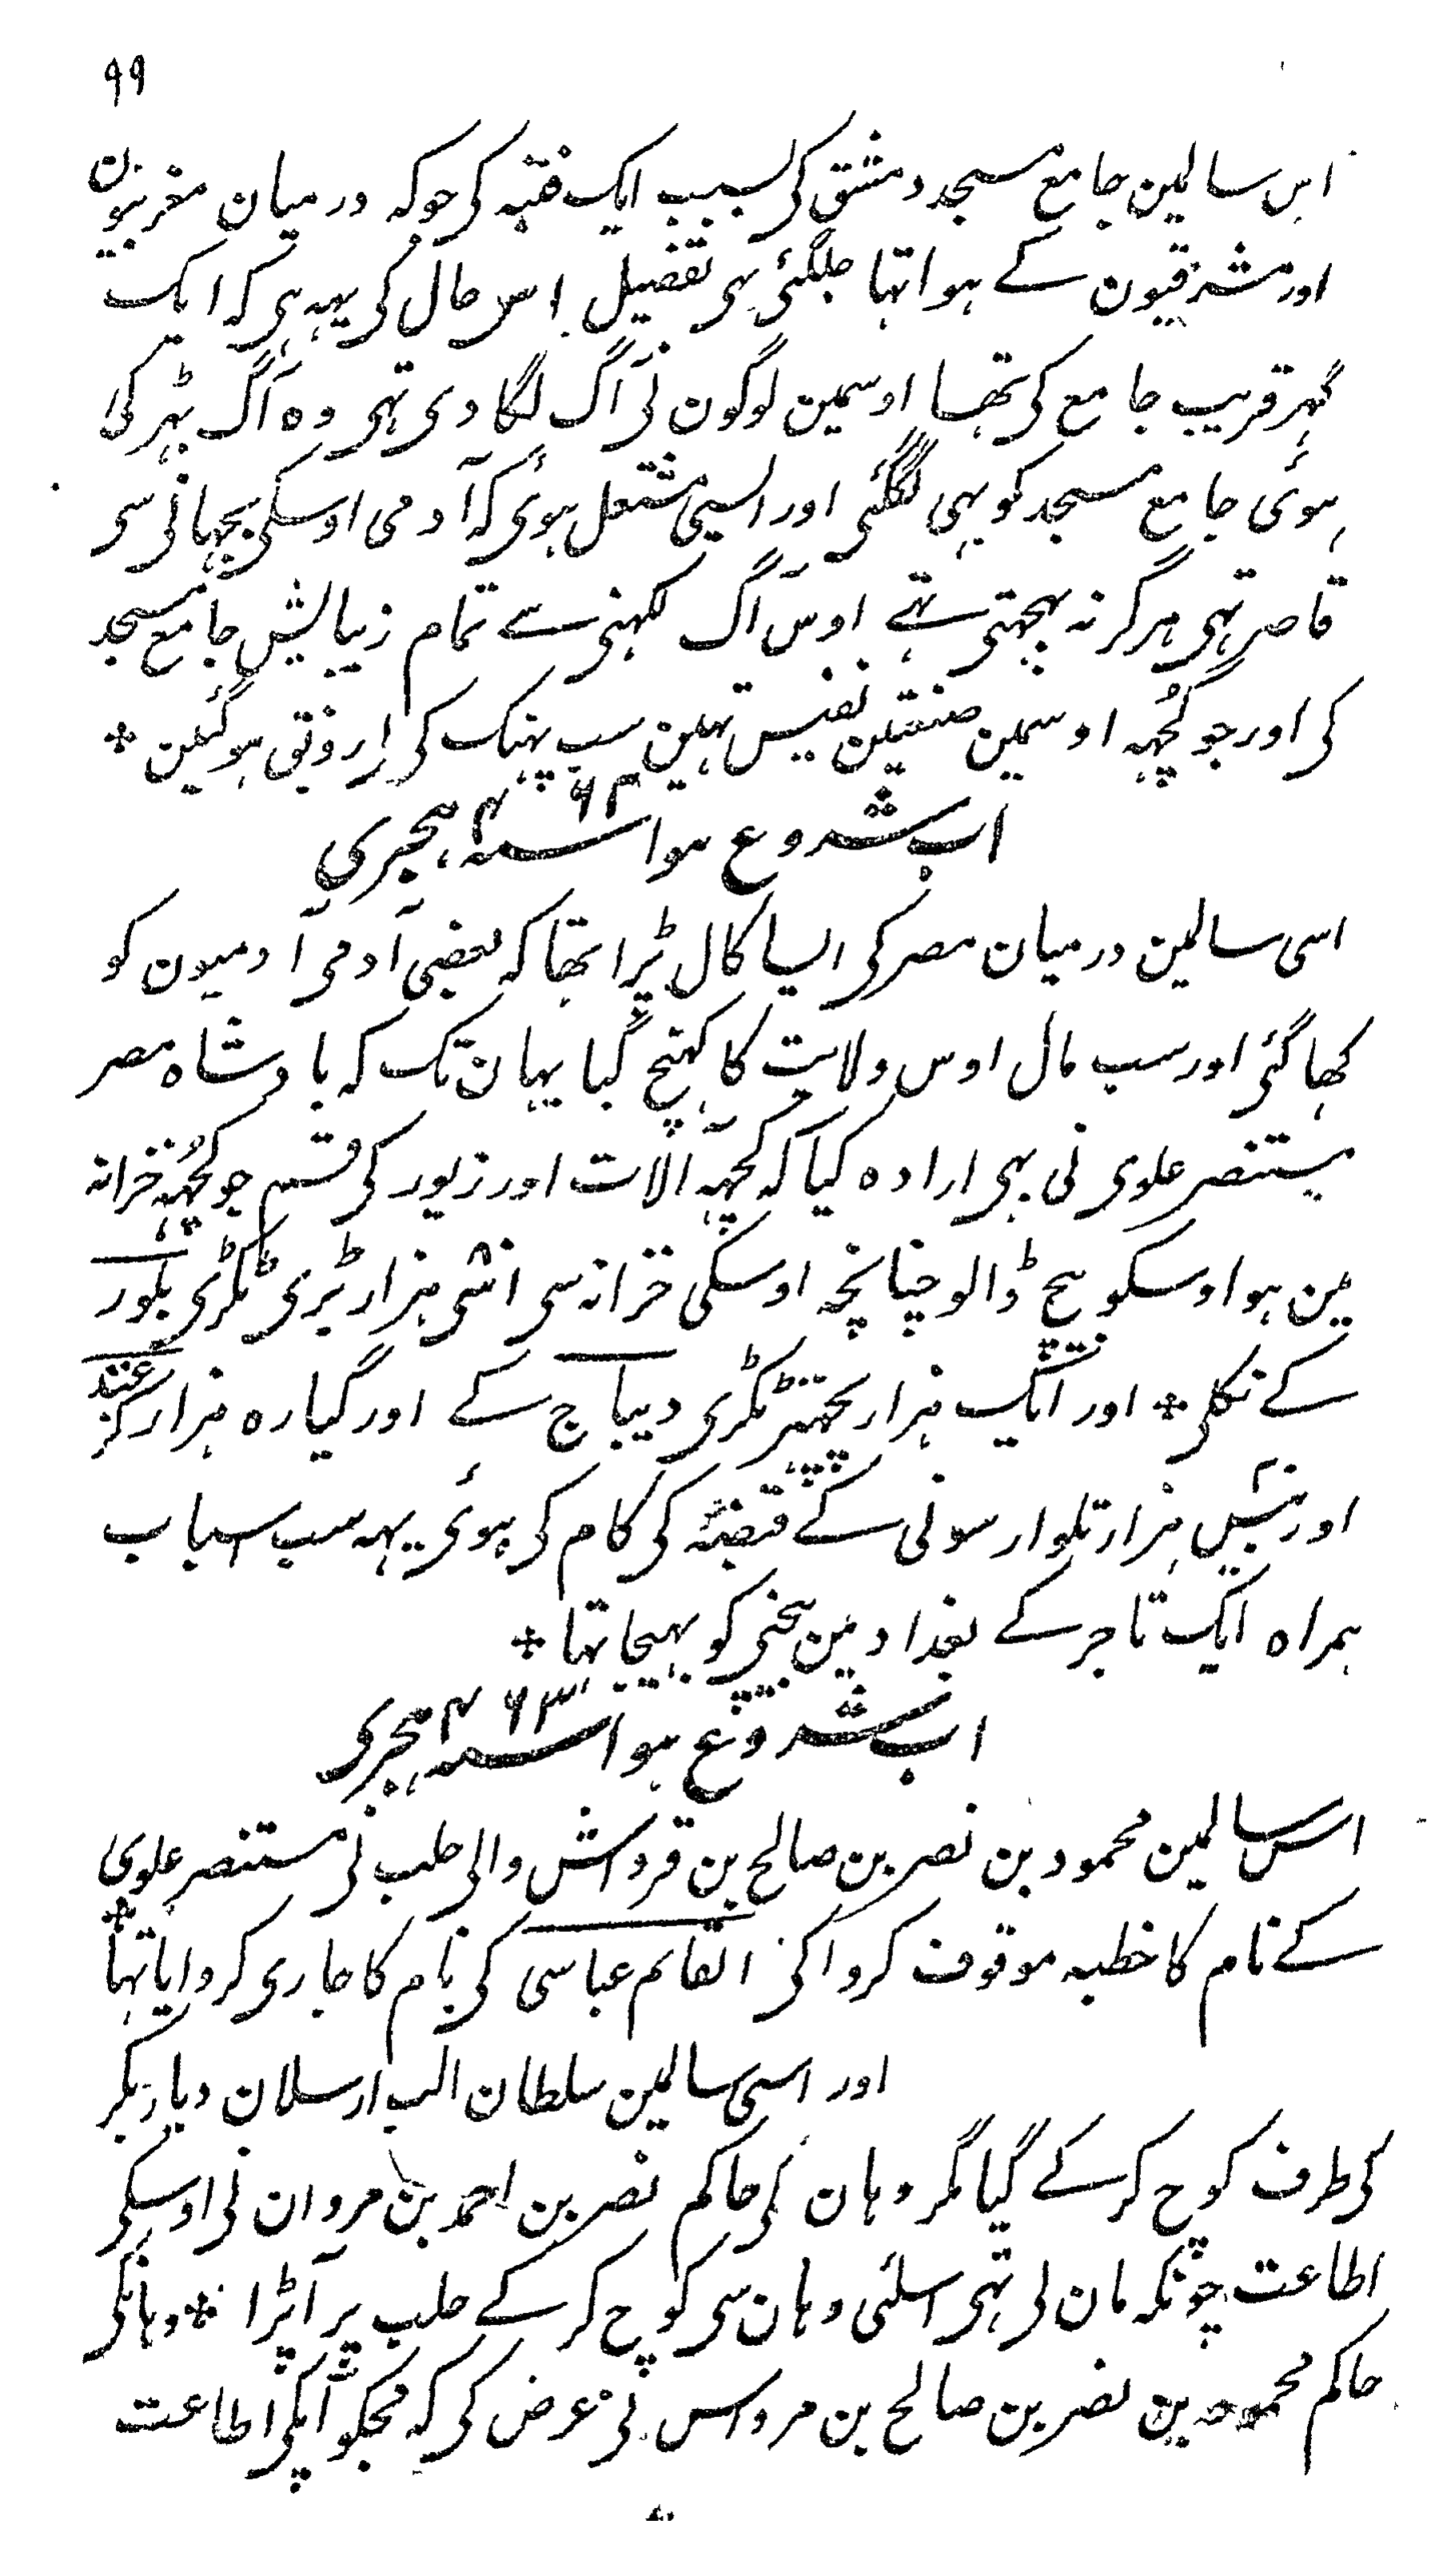 ۹۹
اس سالمین جامع مسجد دمشق کی بسبب ایک فتنہ کی جوکہ درمیان مغربیون
اور مشرقیون کے ہوا تہا جلگئی ہی تفصیل اس حال کی یہہ ہی کہ ایک
گہر قریب جامع کی تھا اوسمین لوگون نی آگ لگا دی تہی وہ آگ بہڑکی
ہوئی جامع مسجد کو بہی لگگئی اور ایسی مشتعل ہوئی کہ آدمی اوسکی بجہانی سی
قاصر تہی ہرگز نہ بجہتی تہے اوس آگ لگہنی سے تمام زیبایش جامع مسجد
کی اور جو کچہہ اوسمین صنعتین نفیس تہین سب پہنک کی ارونق ہوگئین *
اب شروع ہوا سنہ ۴۶۲ ہجری
اسی سالمین درمیان مصر کی ایسا کال پڑا تھا کہ بعضی آدمی آدمیون کو
کھا گئی اور سب مال اوس ولایت کا کہنچ گیا یہان تک کہ بادشاہ مصر
مستنصر علوی نی بہی ارادہ کیا کہ کچہہ آلات اور زیور کی قسم جو کچہہ خزانہ
مین ہو اوسکو بیچ ڈالو چنانچہ اوسکی خزانہ سی اسّی ہزار بڑی ٹکڑی بلور
کے نکلی * اور ایک ہزار پچہتر ٹکڑی دیباج کے اور گیارہ ہزار
اور بیس ہزار تلوار سونی کے قبضہ کی کام کی ہوئی یہہ سب اسباب
ہمراہ ایک تاجر کے بغداد مین بیچنی کو بہیجا تہا *
اب شروع ہوا سنہ ۴۶۳ ہجری
اس سالمین محمود بن نصر بن صالح بن قرواش والی حلب نی مستنصر علوی
کے نام کا خطبہ موقوف کرواکی القایم عباسی کی نام کا جاری کروایا تہا *
اور اسی سالمین سلطان الب ارسلان دیار بکر
کی طرف کوچ کر کے گیا مگر وہان کی حاکم نصر بن احمد بن مروان نی اوسکی
اطاعت چونکہ مان لی تہی اسلئی وہان سی کوچ کر کے حلب پر آ پڑا * وہانکی
حاکم محمود بن نصر بن صالح بن مرداس نی عرض کی کہ مجکو آپکی اطاعت